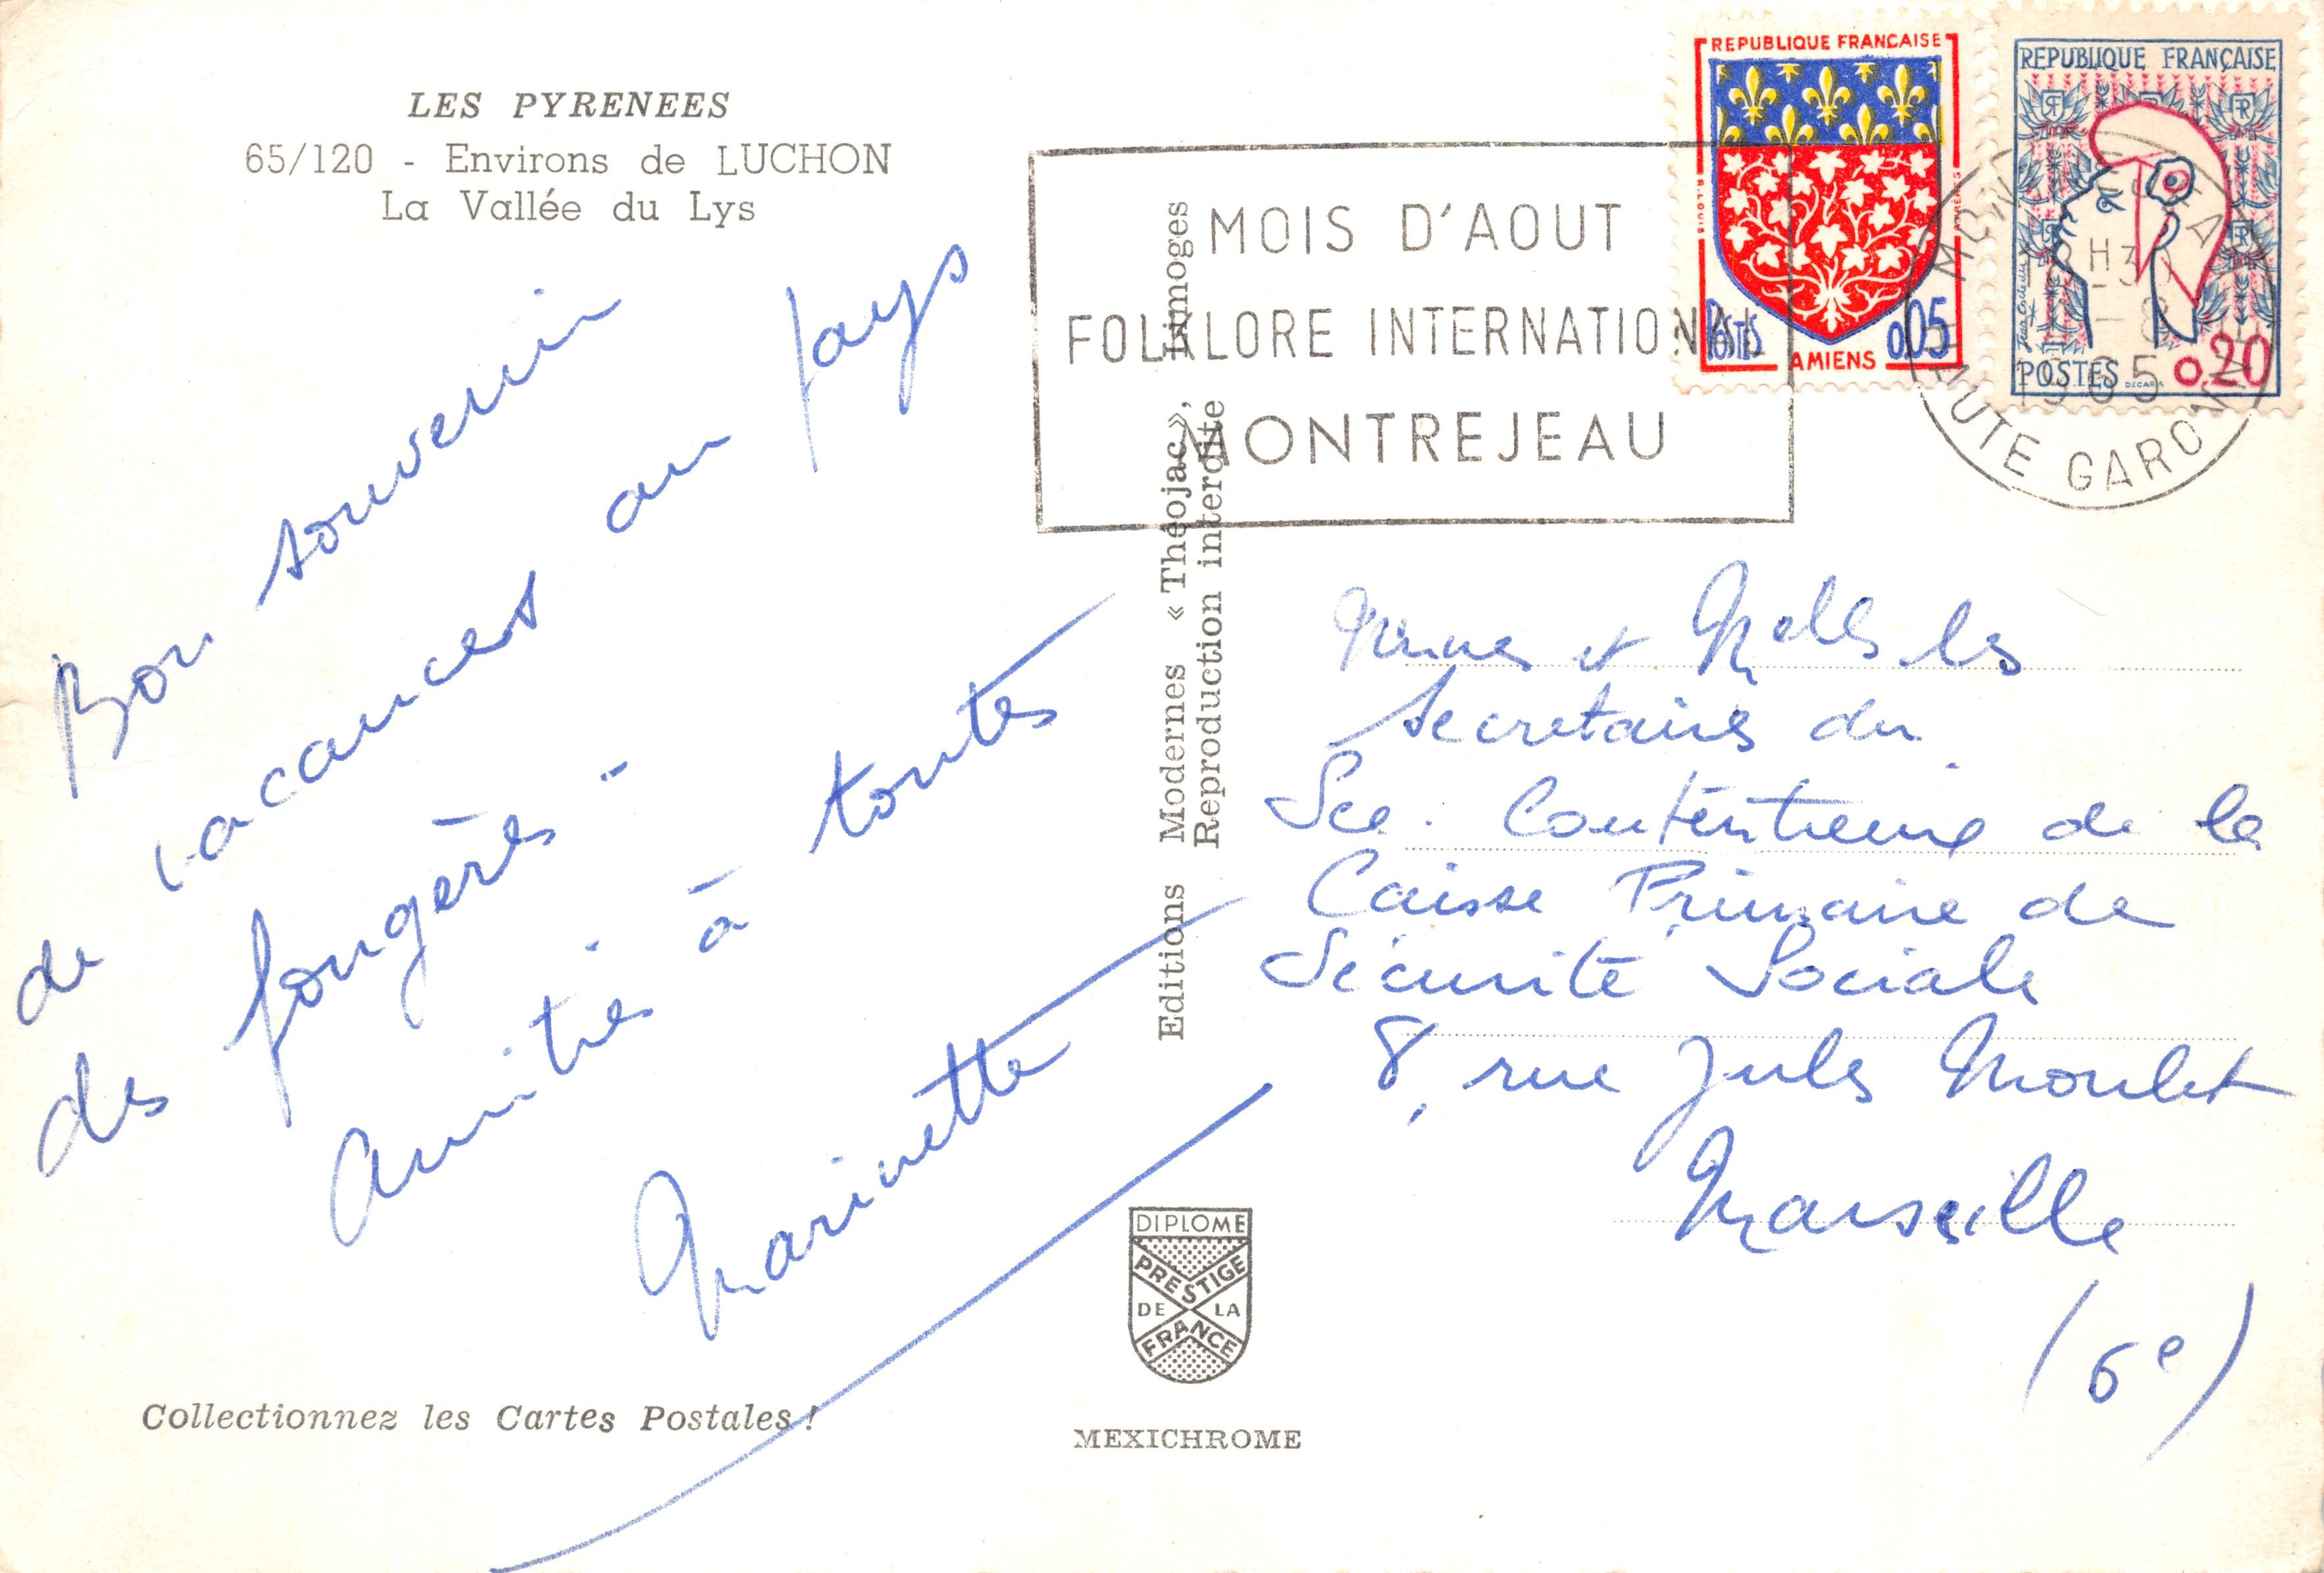 LES PYRENEES
65/120 - Environs de LUCHON
La Vallée du Lys
Bon souvenir
de vacances au pays
des fougères -
Amitiés à toutes
Marinette
Collectionnez les Cartes Postales !
Editions Modernes « Théojac », Limoges
Reproduction interdite
DIPLOME
PRESTIGE
DE LA
FRANCE
MEXICHROME
MOIS D'AOUT
FOLKLORE INTERNATIONAL
MONTREJEAU
REPUBLIQUE FRANCAISE
POSTES 0,05
AMIENS
REPUBLIQUE FRANÇAISE
POSTES 0,20
DECARIS
1965
HAUTE GARONNE
Mmes et Melles les
Secretaires du
Sce. Contentieux de la
Caisse Primaire de
Sécurité Sociale
8, rue Jules Moulet
Marseille
(6e)